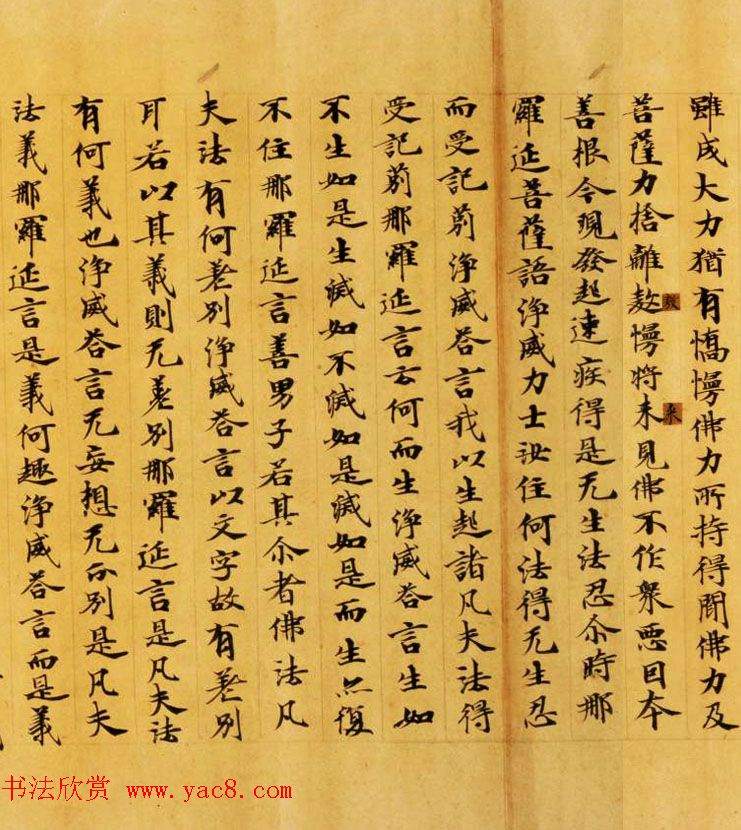 雖成大力猶有憍慢佛力所持得聞佛力及
菩薩力捨離憍慢將来見佛不作衆惡因本
善根今現發起速疾得是无生法忍尒時那
羅延菩薩語浄威力士汝住何法得无生忍
而受記莂浄威荅言我以生起諸凡夫法得
受記莂那羅延言云何而生浄威荅言生如
不生如是生滅如不滅如是滅如是而生亦復
不住那羅延言善男子若其尒者佛法凡
夫法有何差別浄威荅言以文字故有差別
耳若以其義則无差別那羅延言是凡夫法
有何義也浄威荅言无妄想无分別是凡夫
法義那羅延言是義何趣浄威荅言而是義
书法欣赏 www.yac8.com